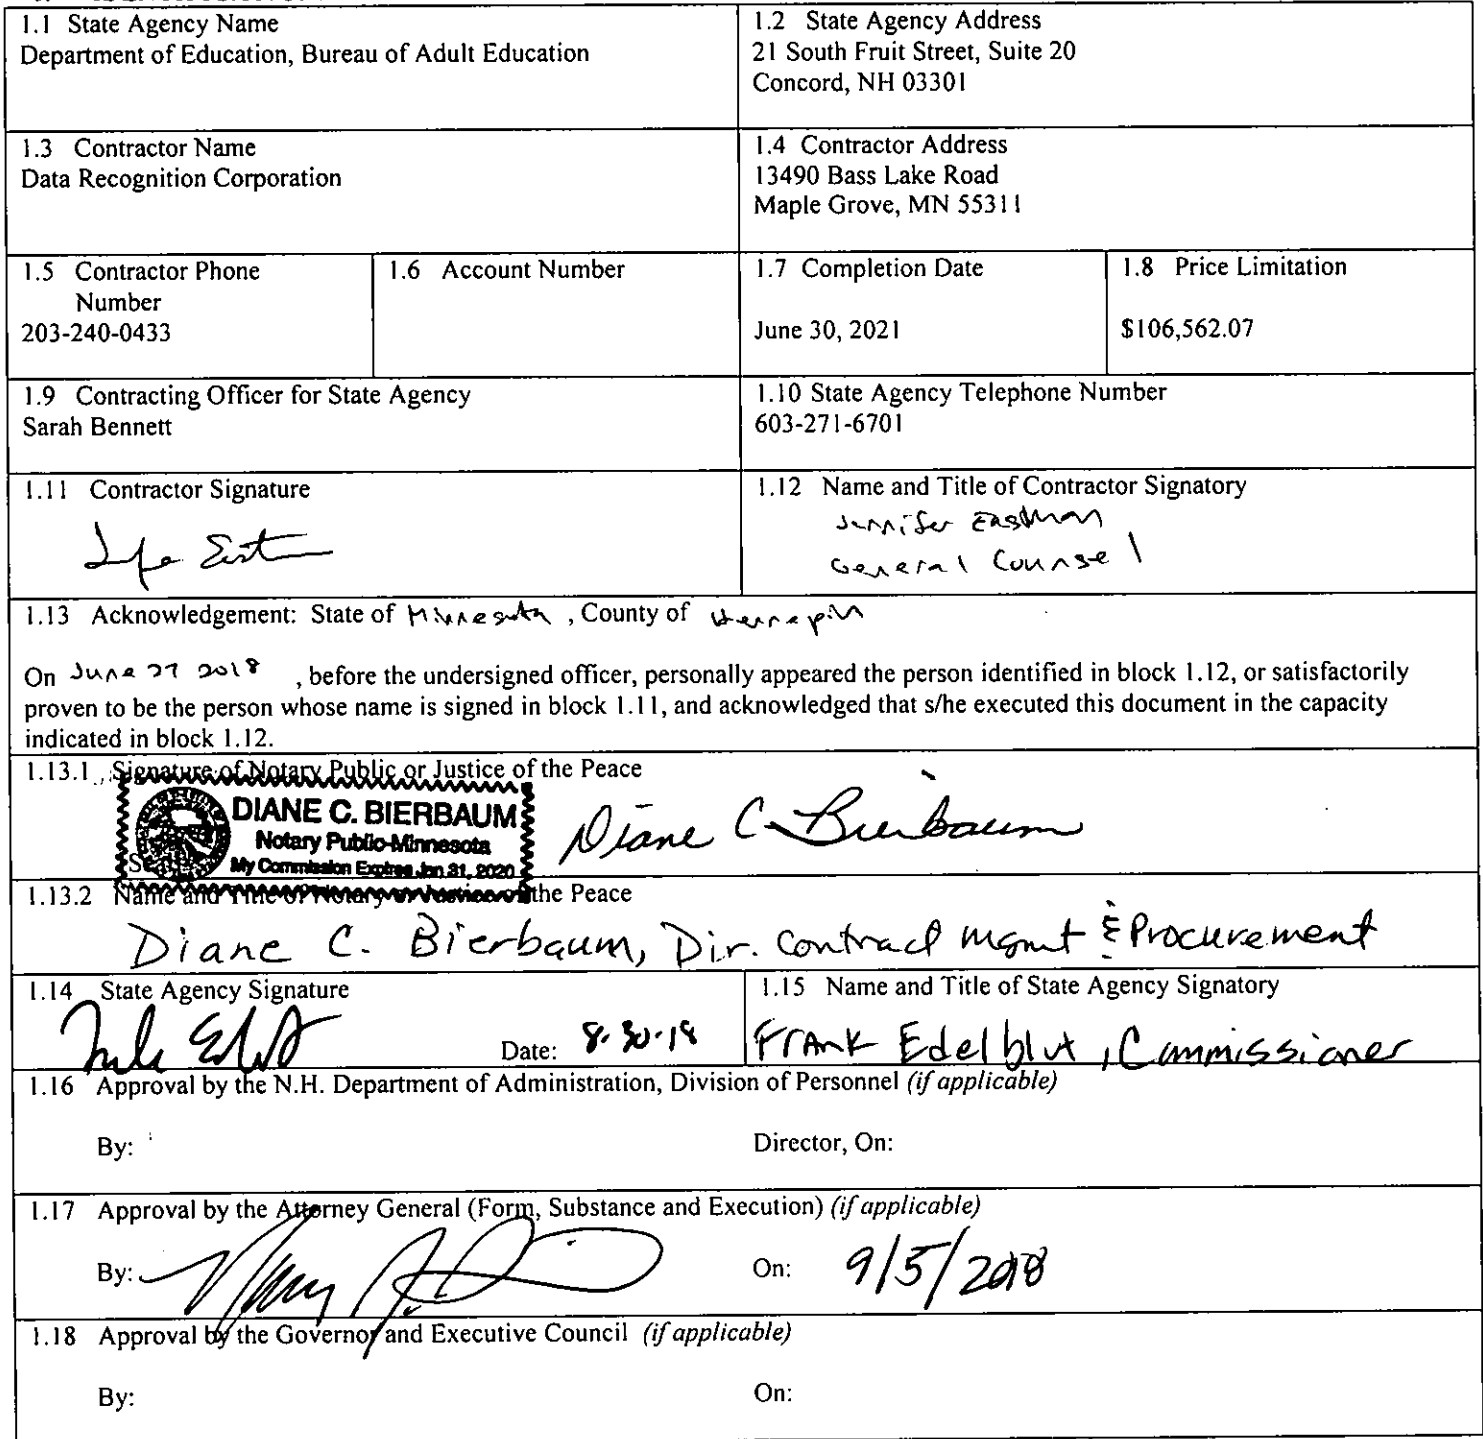 1.1 State Agency Name
Department of Education, Bureau of Adult Education
1.2 State Agency Address
21 South Fruit Street, Suite 20
Concord, NH 03301
1.3 Contractor Name
Data Recognition Corporation
1.4 Contractor Address
13490 Bass Lake Road
Maple Grove, MN 55311
1.5 Contractor Phone
Number
203-240-0433
1.6 Account Number
1.7 Completion Date
June 30, 2021
1.8 Price Limitation
$106,562.07
1.9 Contracting Officer for State Agency
Sarah Bennett
1.10 State Agency Telephone Number
603-271-6701
1.11 Contractor Signature
1.12 Name and Title of Contractor Signatory
Jennifer Eastman
General Counsel
1.13 Acknowledgement: State of Minnesota , County of Hennepin
On June 27 2018 , before the undersigned officer, personally appeared the person identified in block 1.12, or satisfactorily
proven to be the person whose name is signed in block 1.11, and acknowledged that s/he executed this document in the capacity
indicated in block 1.12.
1.13.1 Signature of Notary Public or Justice of the Peace
DIANE C. BIERBAUM
Notary Public-Minnesota
My Commission Expires Jan 31, 2020
Diane C. Bierbaum
1.13.2 Name and Title of Notary or Justice of the Peace
Diane C. Bierbaum, Dir. Contract mgmt & Procurement
1.14 State Agency Signature
Date: 8-30-18
1.15 Name and Title of State Agency Signatory
Frank Edelblut, Commissioner
1.16 Approval by the N.H. Department of Administration, Division of Personnel (if applicable)
By:
Director, On:
1.17 Approval by the Attorney General (Form, Substance and Execution) (if applicable)
By:
On: 9/5/2018
1.18 Approval by the Governor and Executive Council (if applicable)
By:
On: